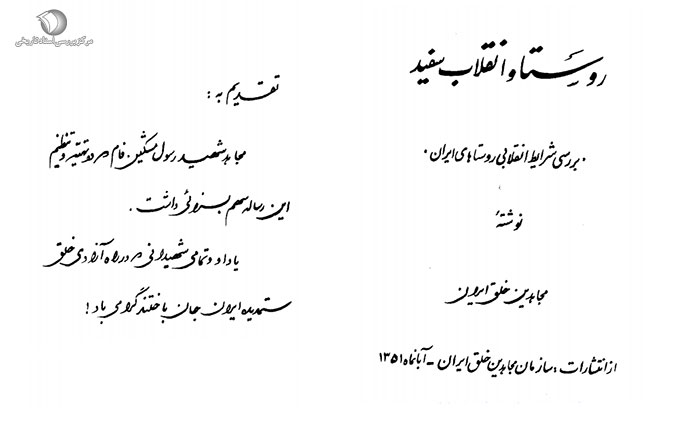 مرکز بررسی اسناد تاریخی
روستا و انقلاب سفید
• بررسی شرایط انقلابی روستاهای ایران •
نوشتهٔ
مجاهدین خلق ایران
از انتشارات : سازمان مجاهدین خلق ایران - آبانماه ۱۳۵۱
تقدیم به :
مجاهد شهید رسول مشکین فام که در تهیه و تنظیم
این رساله سهم بسزائی داشت .
یاد او و تمامی شهیدانی که در راه آزادی خلق
ستمدیده ایران جان باختند گرامی باد !